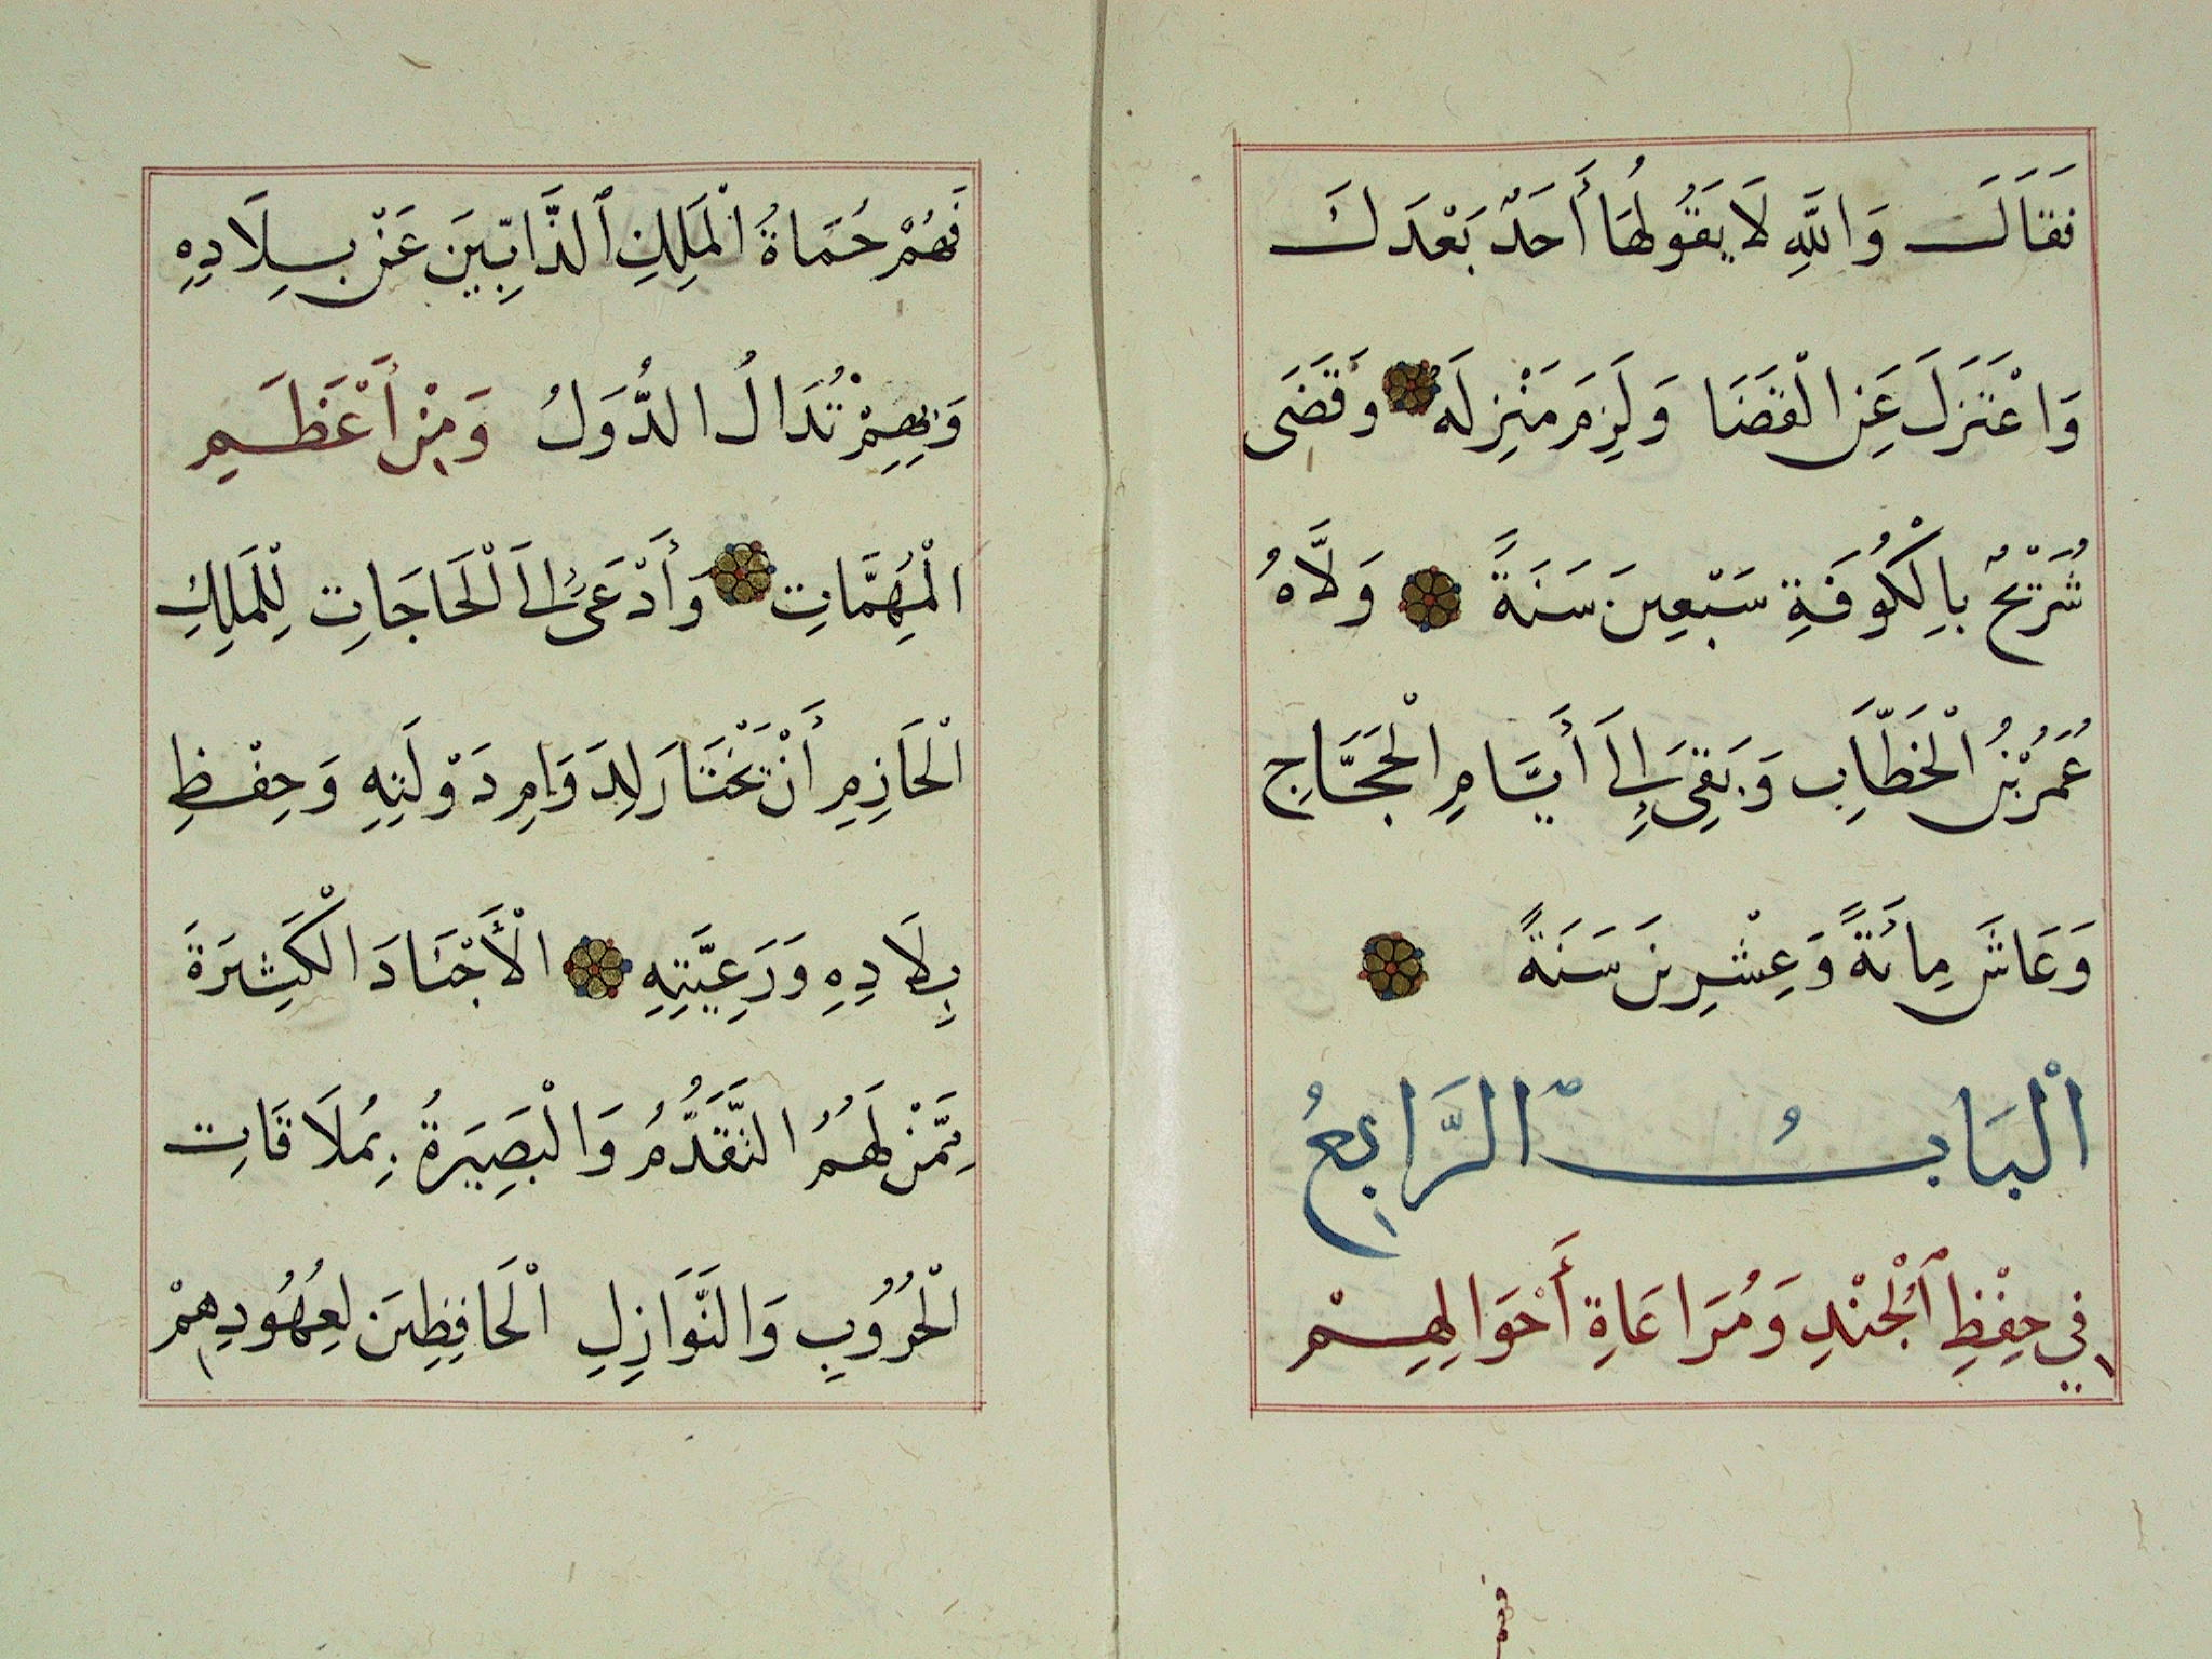 فَقَالَ وَاللَّهِ لَا يَقُولُهَا أَحَدٌ بَعْدَكَ
وَاعْتَزَلَ عَنِ الْقَضَا وَلَزِمَ مَنْزِلَهُ وَقَضَى
شُرَيْحٌ بِالْكُوفَةِ سَبْعِينَ سَنَةً وَلَّاهُ
عُمَرُ بْنُ الْخَطَّابِ وَبَقِيَ إِلَى أَيَّامِ الْحَجَّاجِ
وَعَاشَ مِائَةً وَعِشْرِينَ سَنَةً
الْبَابُ الرَّابِعُ
فِي حِفْظِ ٱلْجُنْدِ وَمُرَاعَاةِ أَحْوَالِهِمْ
فَهُمْ حُمَاةُ الْمَلِكِ ٱلذَّابِّينَ عَنْ بِلَادِهِ
وَبِهِمْ تُدَالُ الدُّوَلُ وَمِنْ أَعْظَمِ
الْمُهِمَّاتِ وَأَدْعَى إِلَى الْحَاجَاتِ لِلْمَلِكِ
الْحَازِمِ أَنْ تَخْتَارَ لِدَوَامِ دَوْلَتِهِ وَحِفْظِ
بِلَادِهِ وَرَعِيَّتِهِ الْأَجْنَادَ الْكَثِيرَةَ
مِمَّنْ لَهُمُ التَّقَدُّمُ وَالْبَصِيرَةُ بِمُلَاقَاتِ
الْحُرُوبِ وَالنَّوَازِلِ الْحَافِظِينَ لِعُهُودِهِمْ